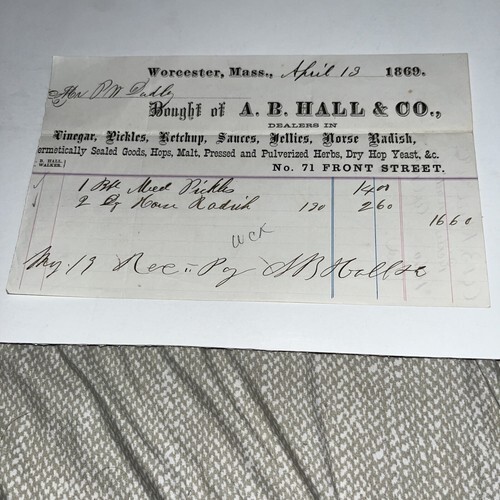 Worcester, Mass., April 13 1869.
Mr P W Dudley
Bought of A. B. HALL & CO.,
DEALERS IN
Vinegar, Pickles, Ketchup, Sauces, Jellies, Horse Radish,
ermetically Sealed Goods, Hops, Malt, Pressed and Pulverized Herbs, Dry Hop Yeast, &c.
B. HALL.
WALKER.
No. 71 FRONT STREET.
1 Med Pickles 14 00
2 Horse Radish 130 2 60
16 60
WCK
19 Rec Py A B Hall & Co